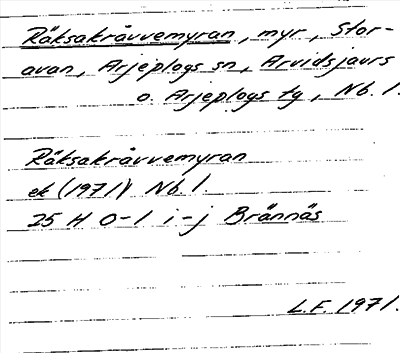 Räksakråvvemyran, myr, Stor-
avan, Arjeplogs sn, Arvidsjaurs
o. Arjeplogs tg, Nb. l.
Räksakråvvemyran
ek (1971) Nb l.
25 H 0-1 i-j Brännäs
L.F. 1971.